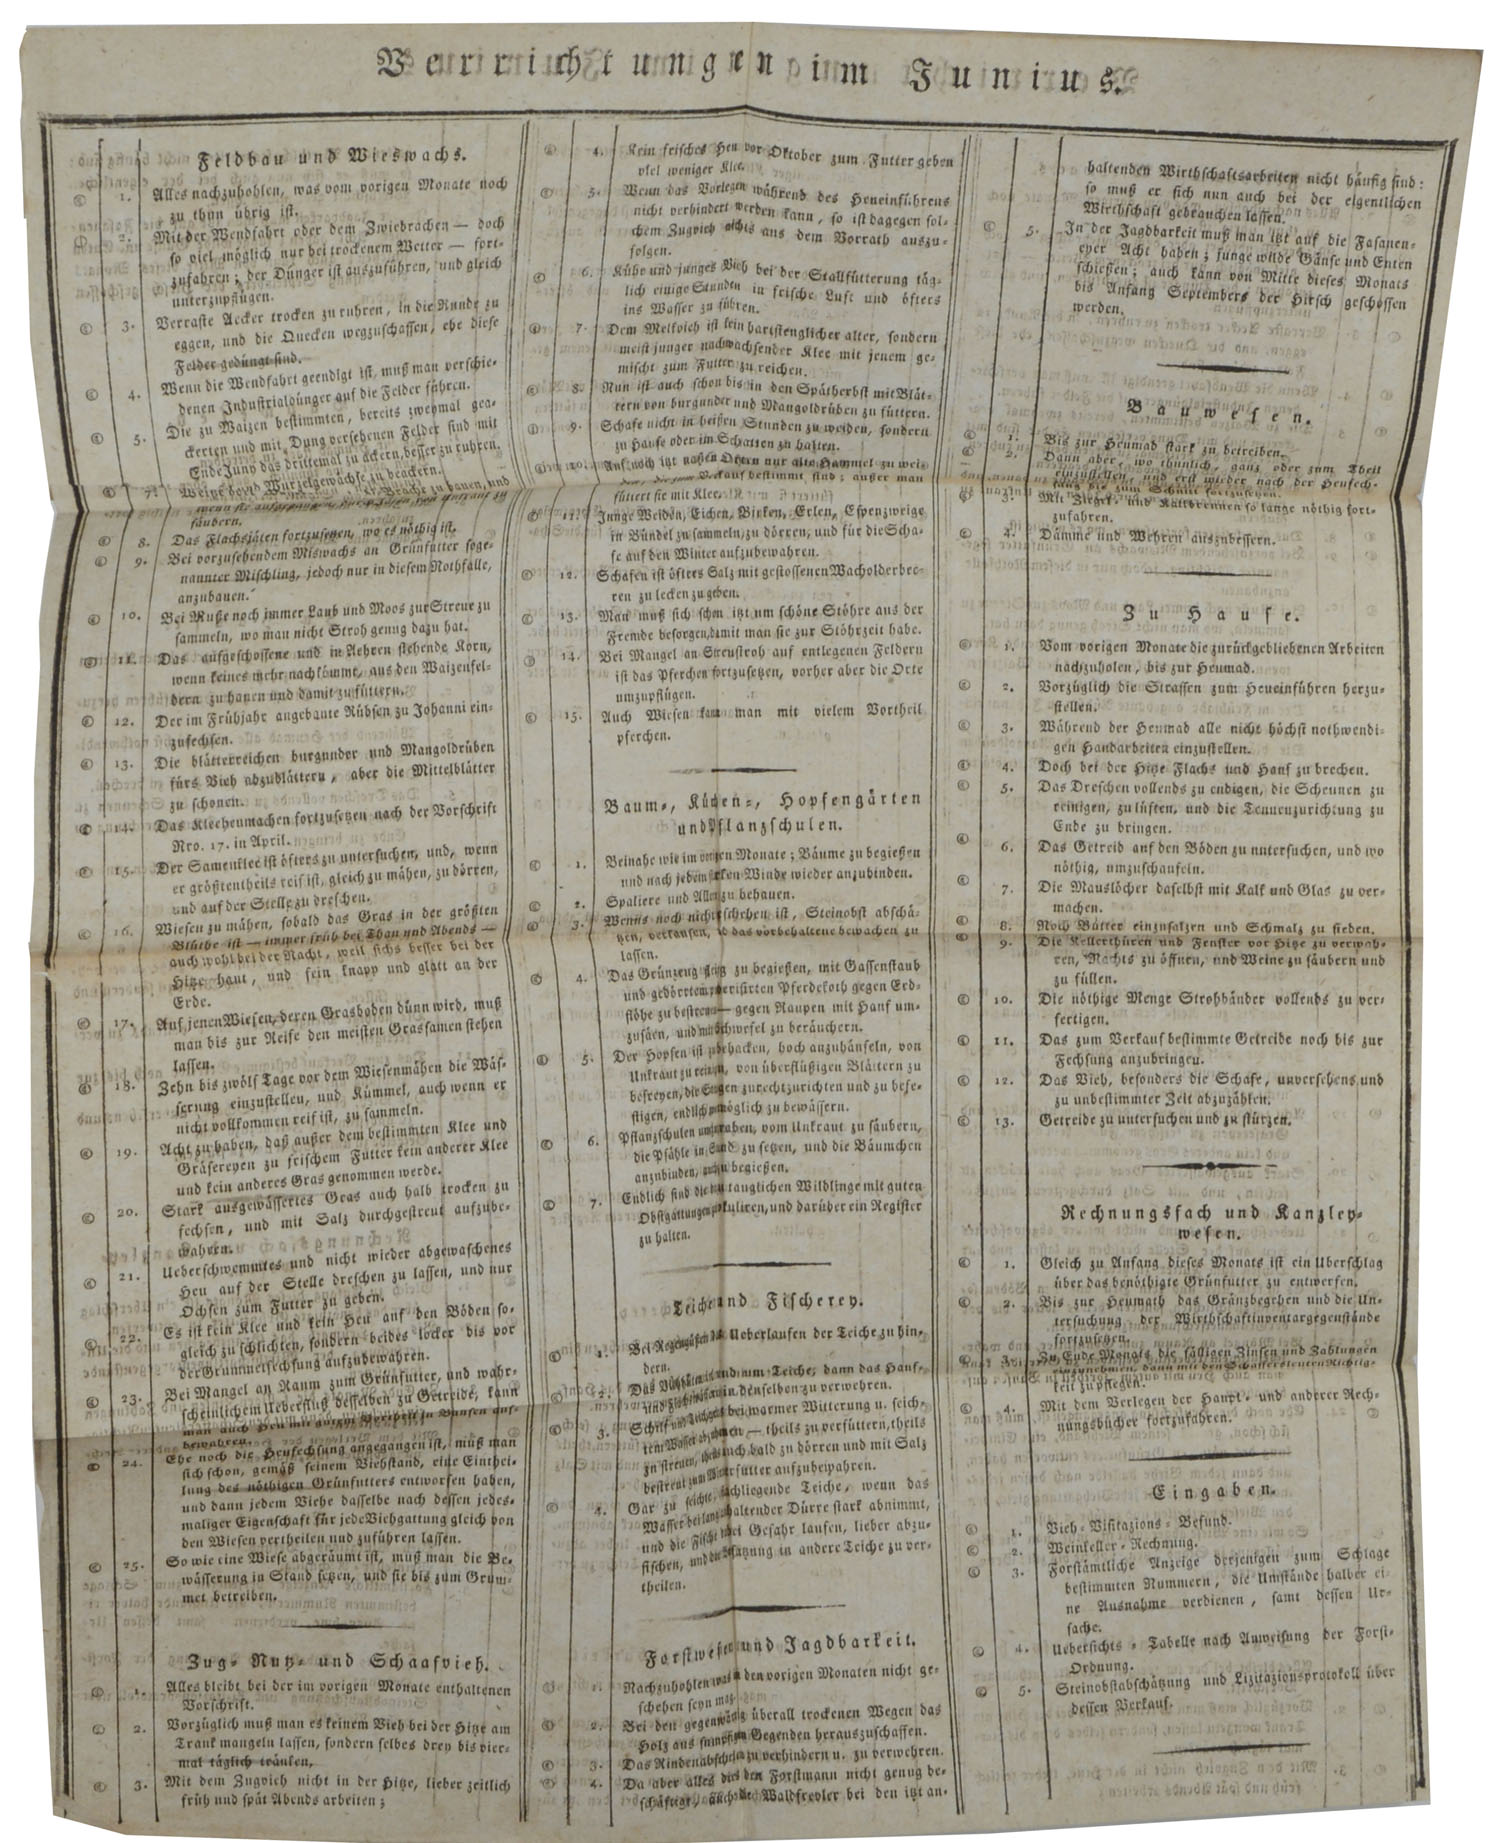 Verrichtungen im Junius.
Feldbau und Wieswachs.
1. Alles nachzuhohlen, was vom vorigen Monate noch
zu thun übrig ist.
2. Mit der Wendfahrt oder dem Zwiebrachen — doch
so viel möglich nur bei trockenem Wetter — fort-
zufahren; der Dünger ist auszuführen, und gleich
unterzupflügen.
3. Verraste Aecker trocken zu ruhren, in die Runde zu
eggen, und die Quecken wegzuschaffen, ehe diese
Felder gedüngt sind.
4. Wenn die Wendfahrt geendigt ist, muß man verschie-
denen Industrialdünger auf die Felder führen.
5. Die zu Waizen bestimmten, bereits zweymal gea-
ckerten und mit Dung versehenen Felder sind mit
Ende Juny das drittemal zu ackern, besser zu ruhren.
Wurzelgewächse zu beackern.
7. Brache zu bauen, und
säubern.
8. Das Flachsjäten fortzusetzen, wo es nöthig ist.
9. Bei vorzusehendem Miswachs an Grünfutter soge-
nannter Mischling, jedoch nur in diesem Nothfalle,
anzubauen.
10. Bei Muße noch immer Laub und Moos zur Streue zu
sammeln, wo man nicht Stroh genug dazu hat.
11. Das aufgeschossene und in Aehren stehende Korn,
wenn keines mehr nachkömmt, aus den Waizenfel-
dern zu hauen und damit zu füttern.
12. Der im Frühjahr angebaute Rübsen zu Johanni ein-
zufechsen.
13. Die blätterreichen burgunder und Mangoldrüben
fürs Vieh abzublättern, aber die Mittelblätter
zu schonen.
14. Das Kleeheumachen fortzusetzen nach der Vorschrift
Nro. 17. in April.
15. Der Samenklee ist öfters zu untersuchen, und, wenn
er größtentheils reif ist, gleich zu mähen, zu dörren,
und auf der Stelle zu dreschen.
16. Wiesen zu mähen, sobald das Gras in der größten
Blüthe ist — immer früh bei Thau und Abends —
auch wohl bei der Nacht, weil sichs besser bei der
Hitze haut, und fein knapp und glatt an der
Erde.
17. Auf jenen Wiesen, deren Grasboden dünn wird, muß
man bis zur Reife den meisten Grassamen stehen
lassen.
18. Zehn bis zwölf Tage vor dem Wiesenmähen die Wäs-
serung einzustellen, und Kümmel, auch wenn er
nicht vollkommen reif ist, zu sammeln.
19. Acht zu haben, daß außer dem bestimmten Klee und
Gräsereyen zu frischem Futter kein anderer Klee
und kein anderes Gras genommen werde.
20. Stark ausgewässertes Gras auch halb trocken zu
fechsen, und mit Salz durchgestreut aufzube-
wahren.
21. Ueberschwemmtes und nicht wieder abgewaschenes
Heu auf der Stelle dreschen zu lassen, und nur
Ochsen zum Futter zu geben.
22. Es ist kein Klee und kein Heu auf den Böden so-
gleich zu schlichten, sondern beides locker bis vor
der Grummetfechsung aufzubewahren.
23. Bei Mangel an Raum zum Grünfutter, und wahr-
scheinlichem Ueberfluß desselben zu Getreide, kann
man auch Heu mit gutem Vortheil zu Bansen auf-
bewahren.
24. Ehe noch die Heufechsung angegangen ist, muß man
sich schon, gemäß seinem Viehstand, eine Einthei-
lung des nöthigen Grünfutters entworfen haben,
und dann jedem Viehe dasselbe nach dessen jedes-
maliger Eigenschaft für jede Viehgattung gleich von
den Wiesen vertheilen und zuführen lassen.
25. So wie eine Wiese abgeräumt ist, muß man die Be-
wässerung in Stand setzen, und sie bis zum Grum-
met betreiben.
Zug- Nutz- und Schaafvieh.
1. Alles bleibt bei der im vorigen Monate enthaltenen
Vorschrift.
2. Vorzüglich muß man es keinem Vieh bei der Hitze am
Trank mangeln lassen, sondern selbes drey bis vier-
mal täglich tränken.
3. Mit dem Zugvieh nicht in der Hitze, lieber zeitlich
früh und spät Abends arbeiten;
4. Kein frisches Heu vor Oktober zum Futter geben
viel weniger Klee.
5. Wenn das Vorlegen während des Heueinführens
nicht verhindert werden kann, so ist dagegen sol-
chem Zugvieh nichts aus dem Vorrath auszu-
folgen.
6. Kühe und junges Vieh bei der Stallfütterung täg-
lich einige Stunden in frische Luft und öfters
ins Wasser zu führen.
7. Dem Melkvieh ist kein hartstenglicher alter, sondern
meist junger nachwachsender Klee mit jenem ge-
mischt zum Futter zu reichen.
8. Nun ist auch schon bis in den Spätherbst mit Blät-
tern von burgunder und Mangoldrüben zu füttern.
9. Schafe nicht in heißen Stunden zu weiden, sondern
zu Hause oder im Schatten zu halten.
10. Auf noch itzt naßen Orten nur alte Hammel zu wei-
den, die zum Verkauf bestimmt sind; außer man
füttert sie mit Klee.
11. Junge Weiden, Eichen, Birken, Erlen, Espenzweige
in Bündel zu sammeln, zu dörren, und für die Scha-
fe auf den Winter aufzubewahren.
12. Schafen ist öfters Salz mit gestossenen Wacholderbee-
ren zu lecken zu geben.
13. Man muß sich schon itzt um schöne Stöhre aus der
Fremde besorgen, damit man sie zur Stöhrzeit habe.
14. Bei Mangel an Streustroh auf entlegenen Feldern
ist das Pferchen fortzusetzen, vorher aber die Orte
umzupflügen.
15. Auch Wiesen kann man mit vielem Vortheil
pferchen.
Baum-, Küchen-, Hopfengärten
und Pflanzschulen.
1. Beinahe wie im vorigen Monate; Bäume zu begießen
und nach jedem starken Winde wieder anzubinden.
2. Spaliere und Alleen zu behauen.
3. Wenns noch nicht geschehen ist, Steinobst abschä-
tzen, verkaufen, und das vorbehaltene bewachen zu
lassen.
4. Das Grünzeug fleißig zu begießen, mit Gassenstaub
und gedörrtem pverisirten Pferdekoth gegen Erd-
flöhe zu bestreuen — gegen Raupen mit Hanf um-
zusäen, und mit Schwefel zu beräuchern.
5. Der Hopfen ist zu behacken, hoch anzuhäufeln, von
Unkraut zu reinigen, von überflüßigen Blättern zu
befreyen, die Stangen zurechtzurichten und zu befe-
stigen, endlich wo möglich zu bewässern.
6. Pflanzschulen umzugraben, vom Unkraut zu säubern,
die Pfähle in Stand zu setzen, und die Bäumchen
anzubinden, auch zu begießen.
7. Endlich sind die tauglichen Wildlinge mit guten
Obstgattungen zu okuliren, und darüber ein Register
zu halten.
Teiche und Fischerey.
1. Bei Regengüßen das Ueberlaufen der Teiche zu hin-
dern.
2. Das Viehhüten in und um Teiche, dann das Hanf-
und Flachsrösten in denselben zu verwehren.
3. Schilf und Teichgras bei warmer Witterung u. seich-
tem Wasser abzumähen — theils zu verfüttern, theils
zu streuen, theils auch bald zu dörren und mit Salz
bestreut zum Winterfutter aufzubewahren.
4. Gar zu seichte, flachliegende Teiche, wenn das
Wasser bei lang anhaltender Dürre stark abnimmt,
und die Fische dabei Gefahr laufen, lieber abzu-
fischen, und die Besatzung in andere Teiche zu ver-
theilen.
Forstwesen und Jagdbarkeit.
1. Nachzuhohlen was in den vorigen Monaten nicht ge-
schehen seyn mag.
2. Bei den gegenwärtig überall trockenen Wegen das
Holz aus sumpfigen Gegenden herauszuschaffen.
3. Das Rindenabschälen zu verhindern u. zu verwehren.
4. Da aber alles dies den Forstmann nicht genug be-
schäftigt, auch die Waldfrevler bei den itzt an-
haltenden Wirthschaftsarbeiten nicht häufig sind:
so muß er sich nun auch bei der eigentlichen
Wirthschaft gebrauchen lassen.
5. In der Jagdbarkeit muß man itzt auf die Fasanen-
eyer Acht haben; junge wilde Gänse und Enten
schießen; auch kann von Mitte dieses Monats
bis Anfang Septembers der Hirsch geschossen
werden.
Bauwesen.
1. Bis zur Heumad stark zu betreiben.
2. Dann aber, wo thunlich, ganz oder zum Theil
einzustellen, und erst wieder nach der Heufech-
sung bis zum Schnitt fortzusetzen.
3. Mit Ziegel- und Kalkbrennen so lange nöthig fort-
zufahren.
4. Dämme und Wehren auszubessern.
Zu Hause.
1. Vom vorigen Monate die zurückgebliebenen Arbeiten
nachzuholen, bis zur Heumad.
2. Vorzüglich die Strassen zum Heueinführen herzu-
stellen.
3. Während der Heumad alle nicht höchst nothwendi-
gen Handarbeiten einzustellen.
4. Doch bei der Hitze Flachs und Hanf zu brechen.
5. Das Dreschen vollends zu endigen, die Scheunen zu
reinigen, zu lüften, und die Tennenzurichtung zu
Ende zu bringen.
6. Das Getreid auf den Böden zu untersuchen, und wo
nöthig, umzuschaufeln.
7. Die Mauslöcher daselbst mit Kalk und Glas zu ver-
machen.
8. Noch Butter einzusalzen und Schmalz zu sieden.
9. Die Kellerthüren und Fenster vor Hitze zu verwah-
ren, Nachts zu öffnen, und Weine zu säubern und
zu füllen.
10. Die nöthige Menge Strohbänder vollends zu ver-
fertigen.
11. Das zum Verkauf bestimmte Getreide noch bis zur
Fechsung anzubringen.
12. Das Vieh, besonders die Schafe, unversehens und
zu unbestimmter Zeit abzuzählen.
13. Getreide zu untersuchen und zu stürzen.
Rechnungsfach und Kanzley-
wesen.
1. Gleich zu Anfang dieses Monats ist ein Uberschlag
über das benöthigte Grünfutter zu entwerfen.
2. Bis zur Heumath das Gränzbegehen und die Un-
tersuchung der Wirthschaftinventargegenstände
fortzusetzen.
3. Zu Ende Monats die fälligen Zinsen und Zahlungen
einzunehmen, dann mit den Schafferleuten Richtig-
keit zu pflegen.
4. Mit dem Verlegen der Haupt- und anderer Rech-
nungsbücher fortzufahren.
Eingaben.
1. Vieh-Visitazions-Befund.
2. Weinkeller-Rechnung.
3. Forstämtliche Anzeige derjenigen zum Schlage
bestimmten Nummern, die Umstände halber ei-
ne Ausnahme verdienen, samt dessen Ur-
sache.
4. Uebersichts-Tabelle nach Anweisung der Forst-
Ordnung.
5. Steinobstabschätzung und Lizitazionsprotokoll über
dessen Verkauf.